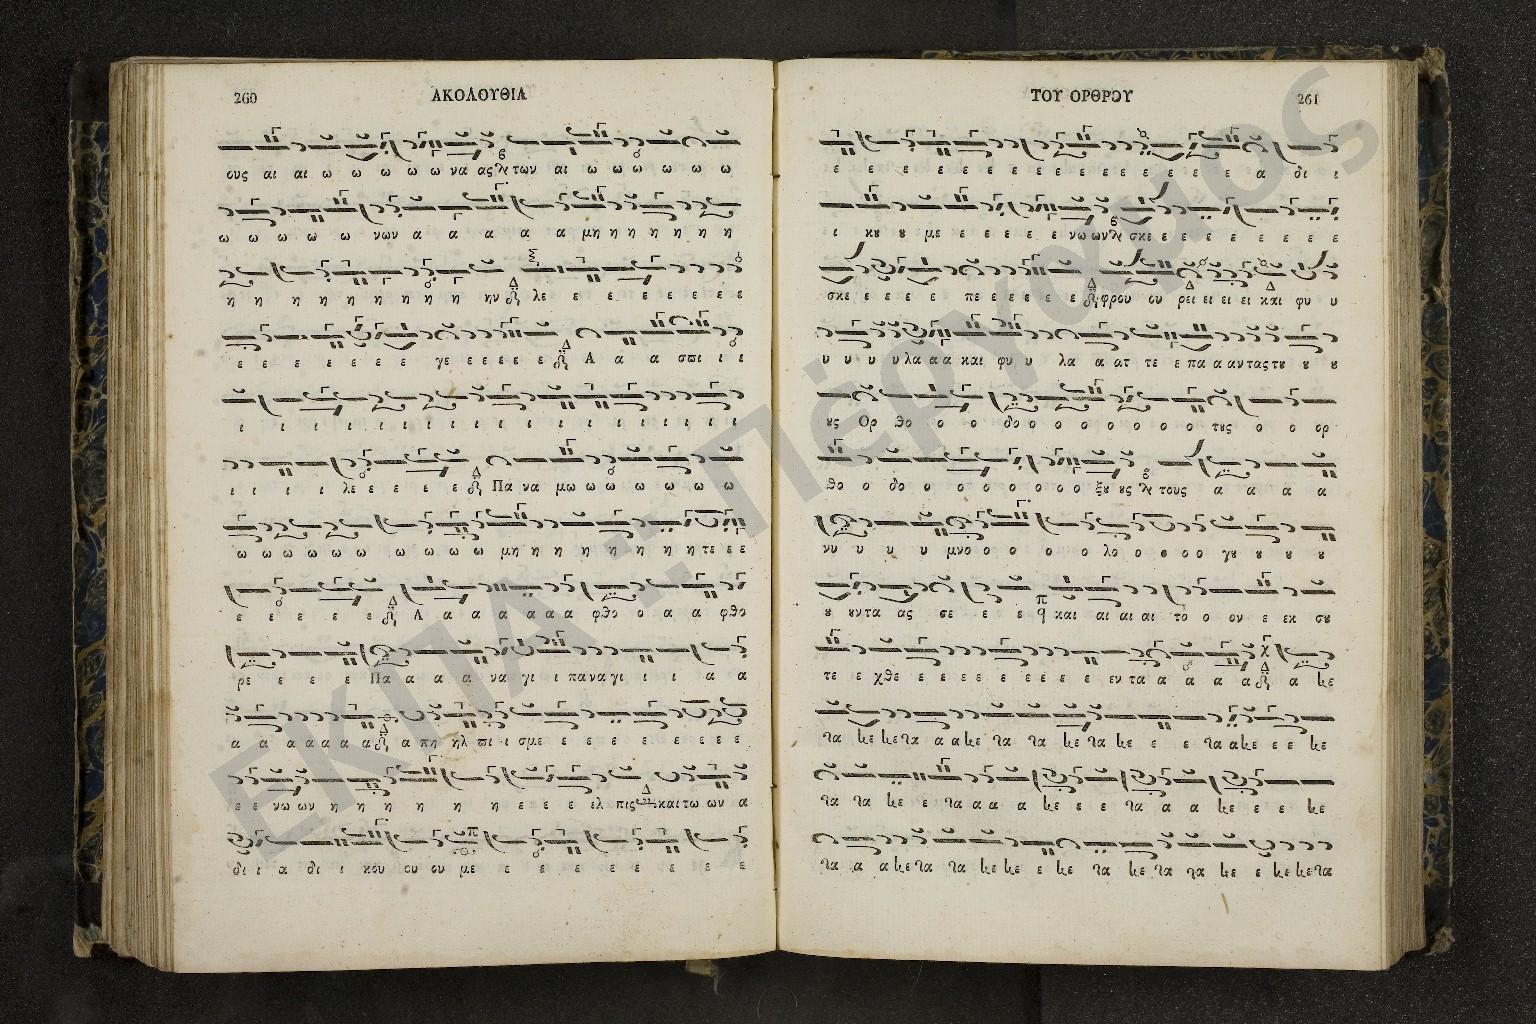 260 ΑΚΟΛΟΥΘΙΑ
ους αι αι ω ω ω ω ω να ας των αι ω ω ω ω ω ω
ω ω ω ω ω νων α α α α α α μη η η η η η η
η η η η η η η η ην λε ε ε ε ε ε ε ε
ε ε ε ε ε ε ε γε ε ε ε ε ε Α α α σπι ι ι
ι ι ι ι ι ι ι ι ι ι ι ι ι ι ι ι
ι ι ι ι λε ε ε ε ε Πα να μω ω ω ω ω ω ω
ω ω ω ω ω ω ω ω ω ω μη η η η η η η η η τε ε ε
ε ε ε ε ε Α α α α α α α φθο ο α α φθο
ρε ε ε ε Πα α α α να γι ι πα να γι ι ι α α
α α α α α α α α πη ηλ πι ι σμε ε ε ε ε ε ε ε ε
ε ε νω ων η η η η η η η ε ε ε ε ελ πις και τω ων α
δι ι α δι ι κου ου ου με ε ε ε ε ε ε ε ε
ΤΟΥ ΟΡΘΡΟΥ 261
ε ε ε ε ε ε ε ε ε ε ε ε ε ε ε α δι ι
ι κȣ ȣ με ε ε ε ε ε νω ων σκε ε ε ε ε ε ε ε ε
σκε ε ε ε ε πε ε ε ε ε ε φρου ου ρει ει ει ει και φυ υ
υ υ υ υ λα α α και φυ υ λα α ατ τε ε πα α αν τας τȣ ȣ ȣ
ȣς Ορ θο ο ο δο ο ο ο ο ο ο ο τȣς ο ο ορ
θο ο δο ο ο ο ο ο ο ο ξȣ ȣς τους α α α α
νυ υ υ υ μνο ο ο ο ο ο λο ο ο ο ο γȣ ȣ ȣ ȣ
ȣ ȣν τα ας σε ε ε και αι αι αι το ο ον ε εκ σȣ
τε ε χθε ε ε ε ε ε ε ε ε εν τα α α α α α κε
τα κε κε τα α α κε τα τα κε τα κε ε ε τα α κε ε ε κε
τα τα κε ε τα α α α κε ε ε τα α α κε ε ε κε
τα α α κε τα τα κε κε ε κε τα κε τα τα κε ε κε κε τα
ΕΚΠΑ: Πέργαμος